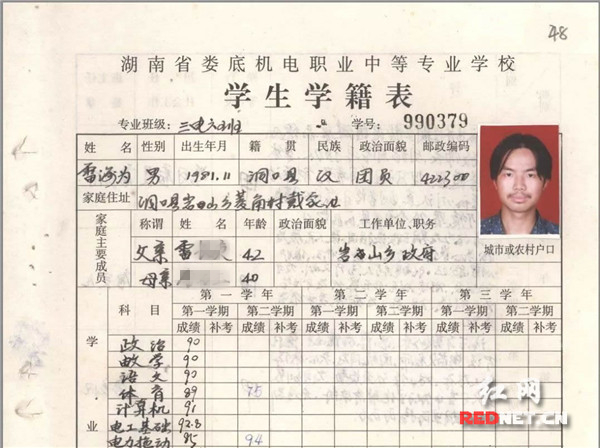 48
湖南省娄底机电职业中等专业学校
学生学籍表
专业班级: 三电六班 学号: 990379
姓名 性别 出生年月 籍贯 民族 政治面貌 邮政编码
雷海为 男 1981.11 洞口县 汉 团员 422300
家庭住址 洞口县岩山乡菱角村
家庭主要成员 称谓 姓名 年龄 政治面貌 工作单位、职务
父亲 雷 42 岩山乡政府
母亲 40
城市或农村户口
科目 第一学年 第二学年 第三学年
第一学期 第二学期 第一学期 第二学期 第一学期 第二学期
成绩 补考 成绩 补考 成绩 补考 成绩 补考 成绩 补考 成绩 补考
学 政治 90
数学 90
语文 90
体育 89 75
计算机 91
业 电工基础 92.8
电力拖动 95 94
红网
REDNET.CN